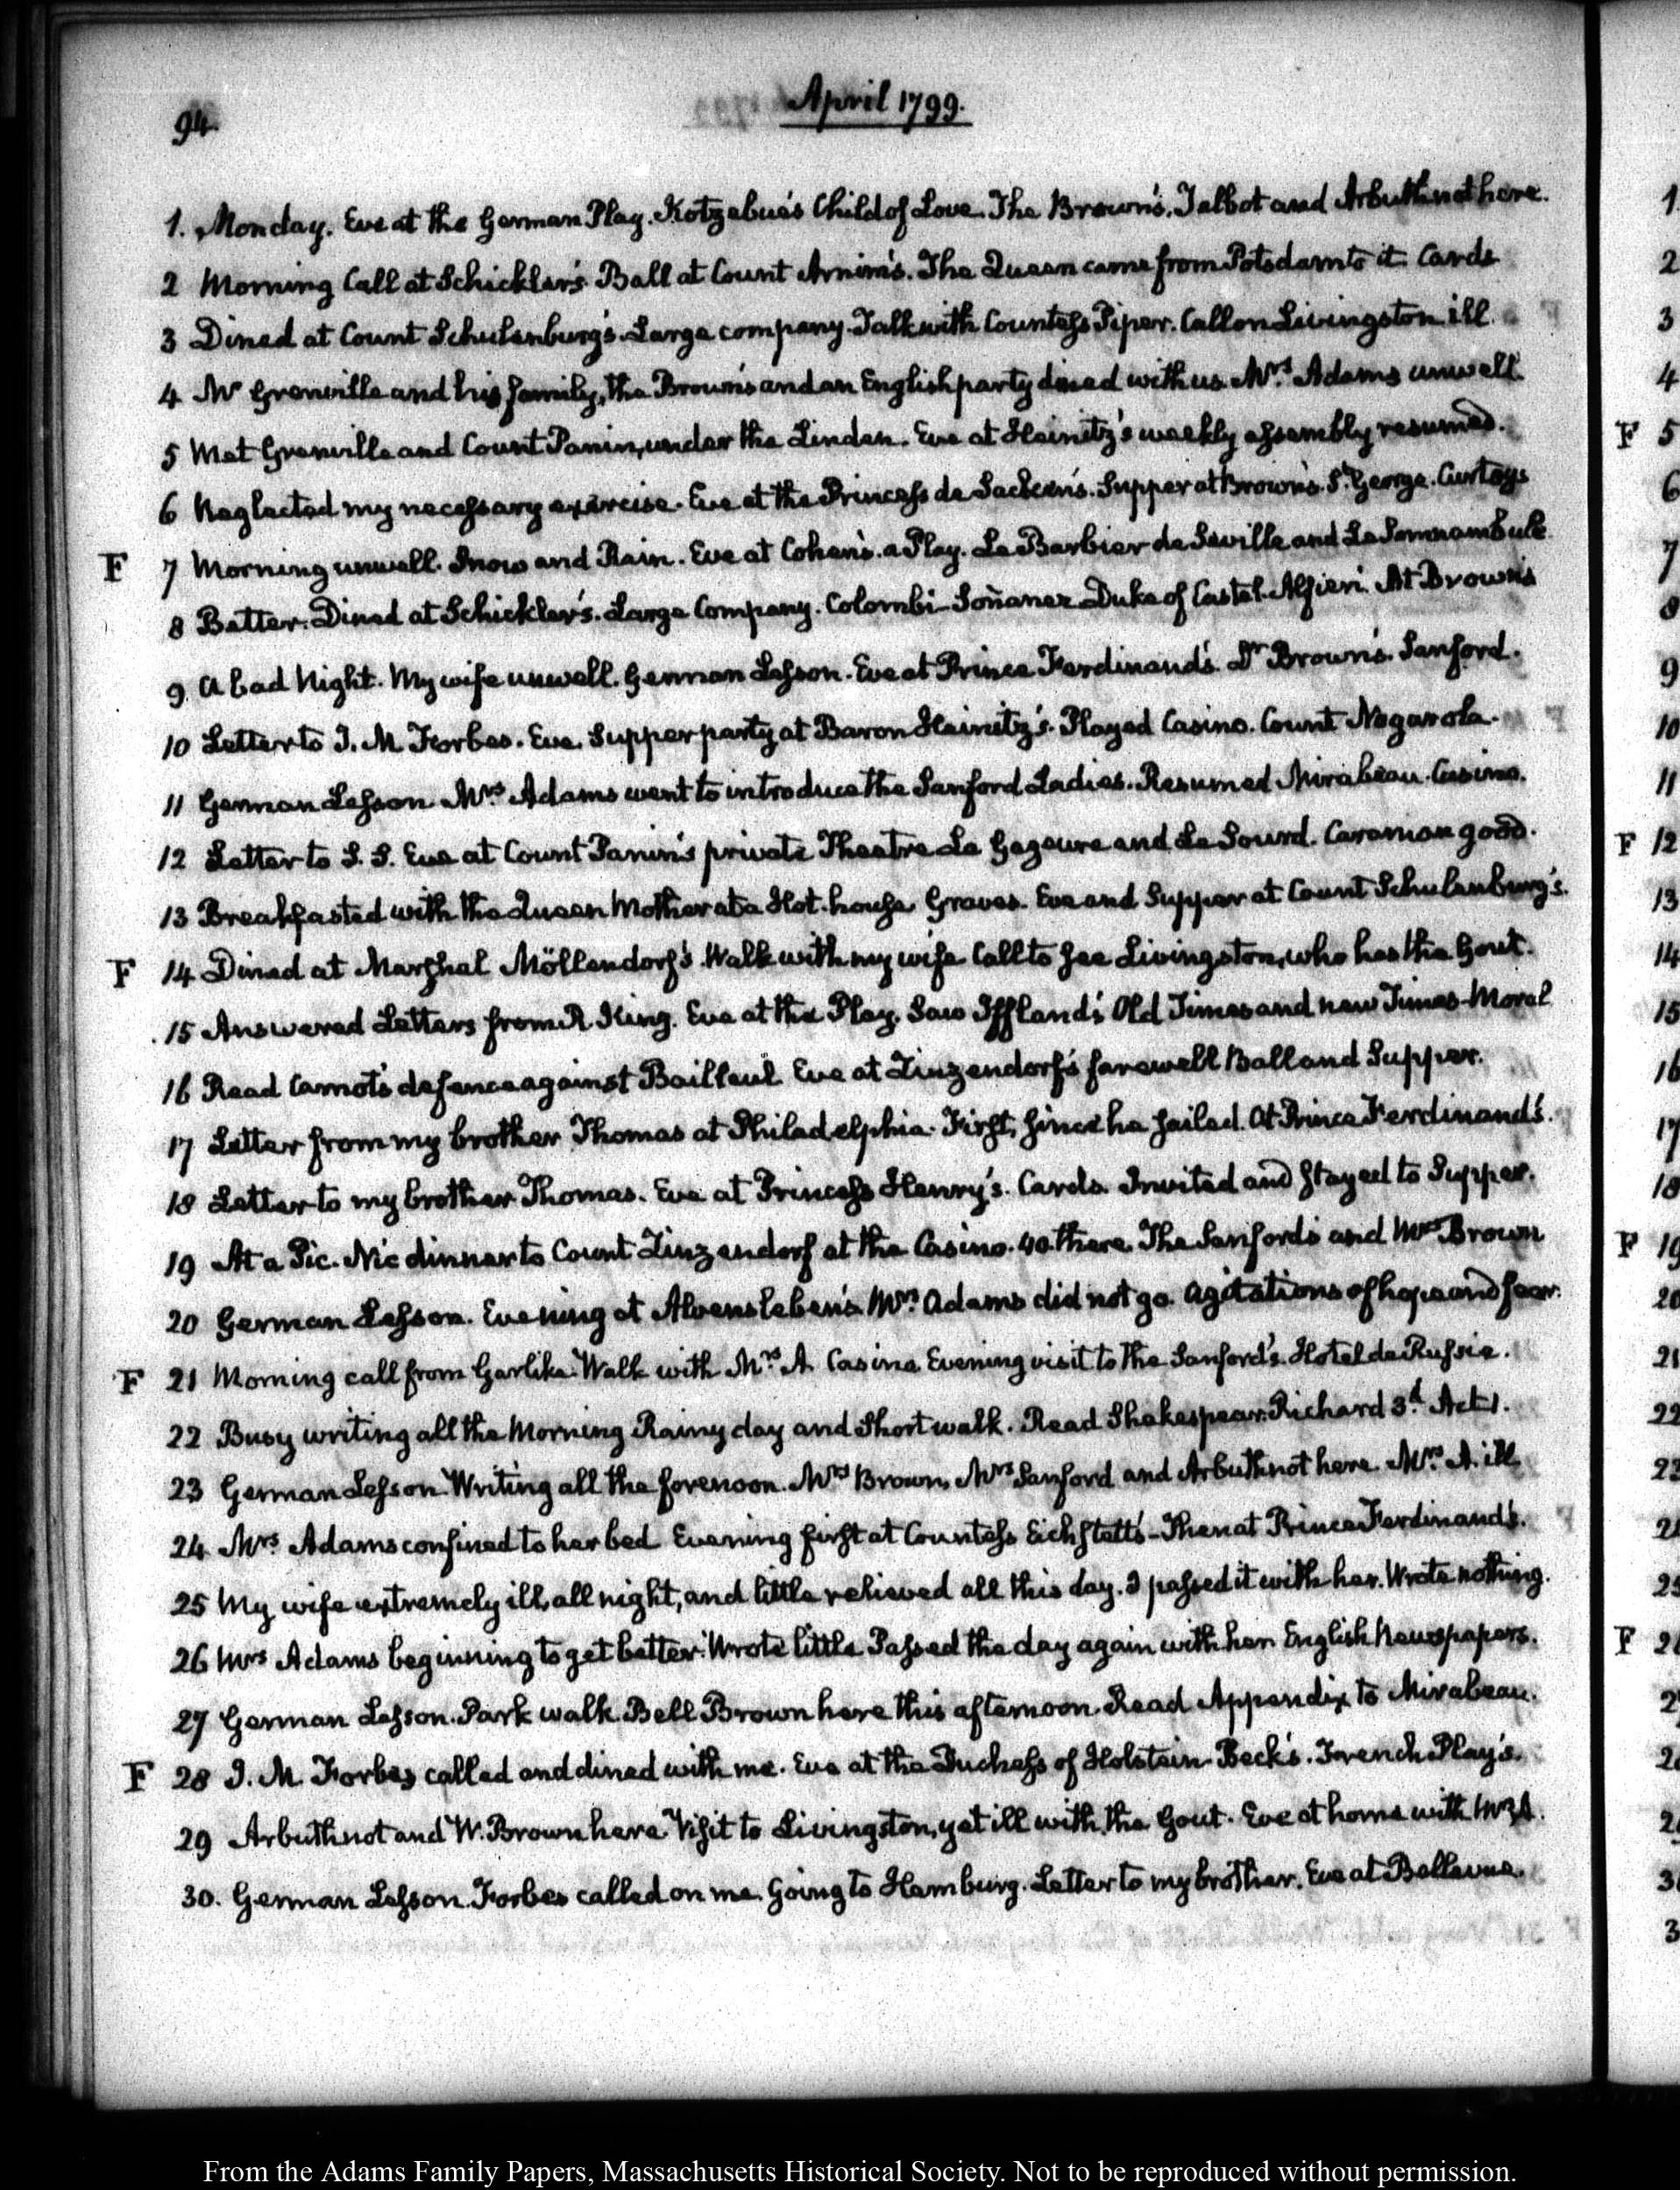 94
April 1799.
1. Monday. Eve at the German Play. Kotzebue's Child of Love. The Brown's. Talbot and Arbuthnot here.
2 Morning Call at Schickler's Ball at Count Arnim's. The Queen came from Potsdam to it. Cards
3 Dined at Count Schulenburg's. Large company. Talk with Countess Piper. Call on Livingston ill.
4 Mr Grenville and his family, the Brown's and an English party dined with us. Mrs. Adams unwell.
5 Met Grenville and Count Panin, under the Linden. Eve at Heinitz's weekly assembly resumed.
6 Neglected my necessary exercise. Eve at the Princess de Sacken's. Supper at Brown's. St. George. Curtoys
F 7 Morning unwell. Snow and Rain. Eve at Cohen's. a Play. Le Barbier de Seville and La Somnambule
8 Better. Dined at Schickler's. Large Company. Colombi-Soñanez Duke of Castel-Alfieri. At Brown's
9. A bad Night. My wife unwell. German Lesson. Eve at Prince Ferdinand's. Dr Brown's. Sanford.
10 Letter to J. M. Forbes. Eve. Supper party at Baron Heinitz's. Played Casino. Count Nogarola.
11 German Lesson. Mrs Adams went to introduce the Sanford Ladies. Resumed Mirabeau. Casino.
12 Letter to S. S. Eve at Count Panin's private Theatre La Gageure and Le Sourd. Caraman good.
13 Breakfasted with the Queen Mother at a Hot-house Graves. Eve and Supper at Count Schulenburg's.
F 14 Dined at Marshal Möllendorf's. Walk with my wife Call to see Livingston, who has the Gout.
15 Answered Letters from R. King. Eve at the Play. Saw Iffland's Old Times and new Times-Moral
16 Read Carnot's defence against Bailleul. Eve at Zinzendorf's farewell Ball and Supper.
17 Letter from my brother Thomas at Philadelphia. First, since he sailed. At Prince Ferdinand's.
18 Letter to my brother Thomas. Eve at Princess Henry's. Cards. Invited and stayed to Supper.
19 At a Pic-Nic dinner to Count Zinzendorf at the Casino. 40 there. The Sanfords and Mrs Brown
20 German Lesson. Evening at Alvensleben's. Mrs. Adams did not go. Agitations of hope and fear.
F 21 Morning call from Garlike. Walk with Mrs. A Casino Evening visit to the Sanford's. Hotel de Russie.
22 Busy writing all the Morning Rainy day and Short walk. Read Shakespear. Richard 3d. Act 1.
23 German Lesson. Writing all the forenoon. Mrs Brown, Mrs Sanford and Arbuthnot here. Mrs. A. ill
24. Mrs. Adams confined to her bed Evening first at Countess Eichstett's-Then at Prince Ferdinand's.
25 My wife extremely ill, all night, and little relieved all this day. I passed it with her. Wrote nothing.
26 Mrs Adams beginning to get better. Wrote little. Passed the day again with her. English Newspapers.
27 German Lesson. Park walk. Bell Brown here this afternoon. Read Appendix to Mirabeau.
F 28 J. M. Forbes called and dined with me. Eve at the Duchess of Holstein-Beck's. French Play's.
29 Arbuthnot and W. Brown here. Visit to Livingston, yet ill with the Gout. Eve at home with Mrs A.
30. German Lesson. Forbes called on me. Going to Hamburg. Letter to my brother. Eve at Bellevue.
From the Adams Family Papers, Massachusetts Historical Society. Not to be reproduced without permission.